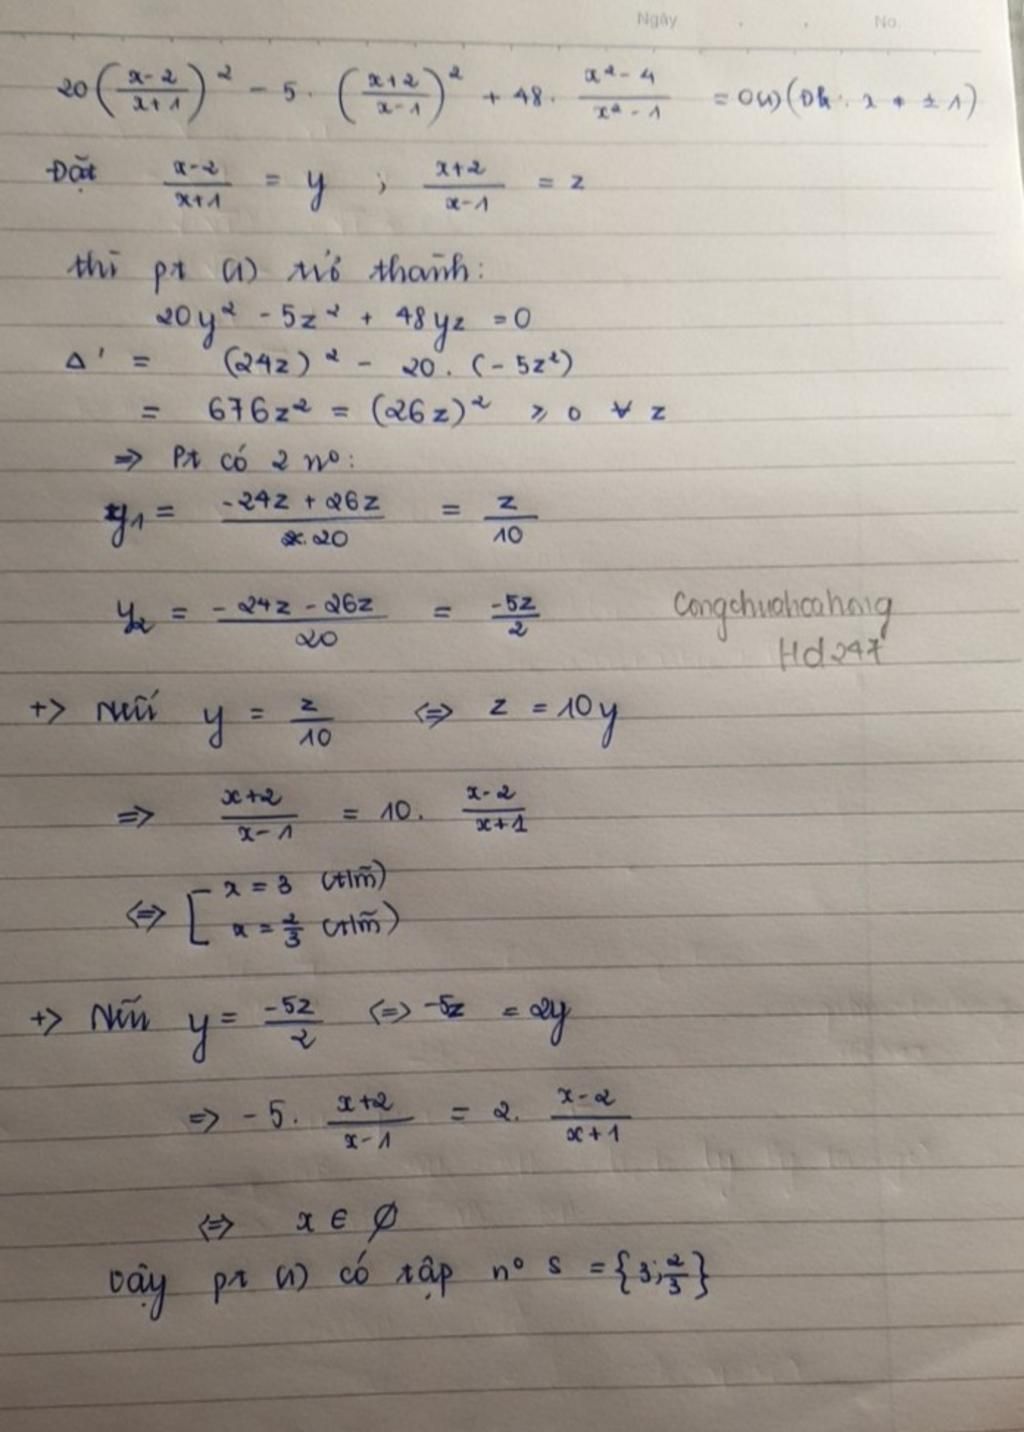 Ngày . . No.
20(\frac{x-2}{x+1})^2 - 5. (\frac{x+2}{x-1})^2 + 48. \frac{x^2-4}{x^2-1} = 0 (1) (Đk: x ≠ ±1)
Đặt \frac{x-2}{x+1} = y ; \frac{x+2}{x-1} = z
thì pt (1) trở thành:
20y^2 - 5z^2 + 48yz = 0
Δ' = (24z)^2 - 20. (-5z^2)
= 676z^2 = (26z)^2 ≥ 0 ∀ z
=> Pt có 2 n^o:
y_1 = \frac{-24z + 26z}{20} = \frac{z}{10}
y_2 = \frac{-24z - 26z}{20} = \frac{-5z}{2}
Congchuahoahong
Hd247
+> Nếu y = \frac{z}{10} <=> z = 10y
=> \frac{x+2}{x-1} = 10. \frac{x-2}{x+1}
<=> [ x = 3 (t/m)
x = \frac{2}{3} (t/m)
+> Nếu y = \frac{-5z}{2} <=> -5z = 2y
=> -5. \frac{x+2}{x-1} = 2. \frac{x-2}{x+1}
<=> x ∈ ∅
Vậy pt (1) có tập n^o S = {3; \frac{2}{3}}